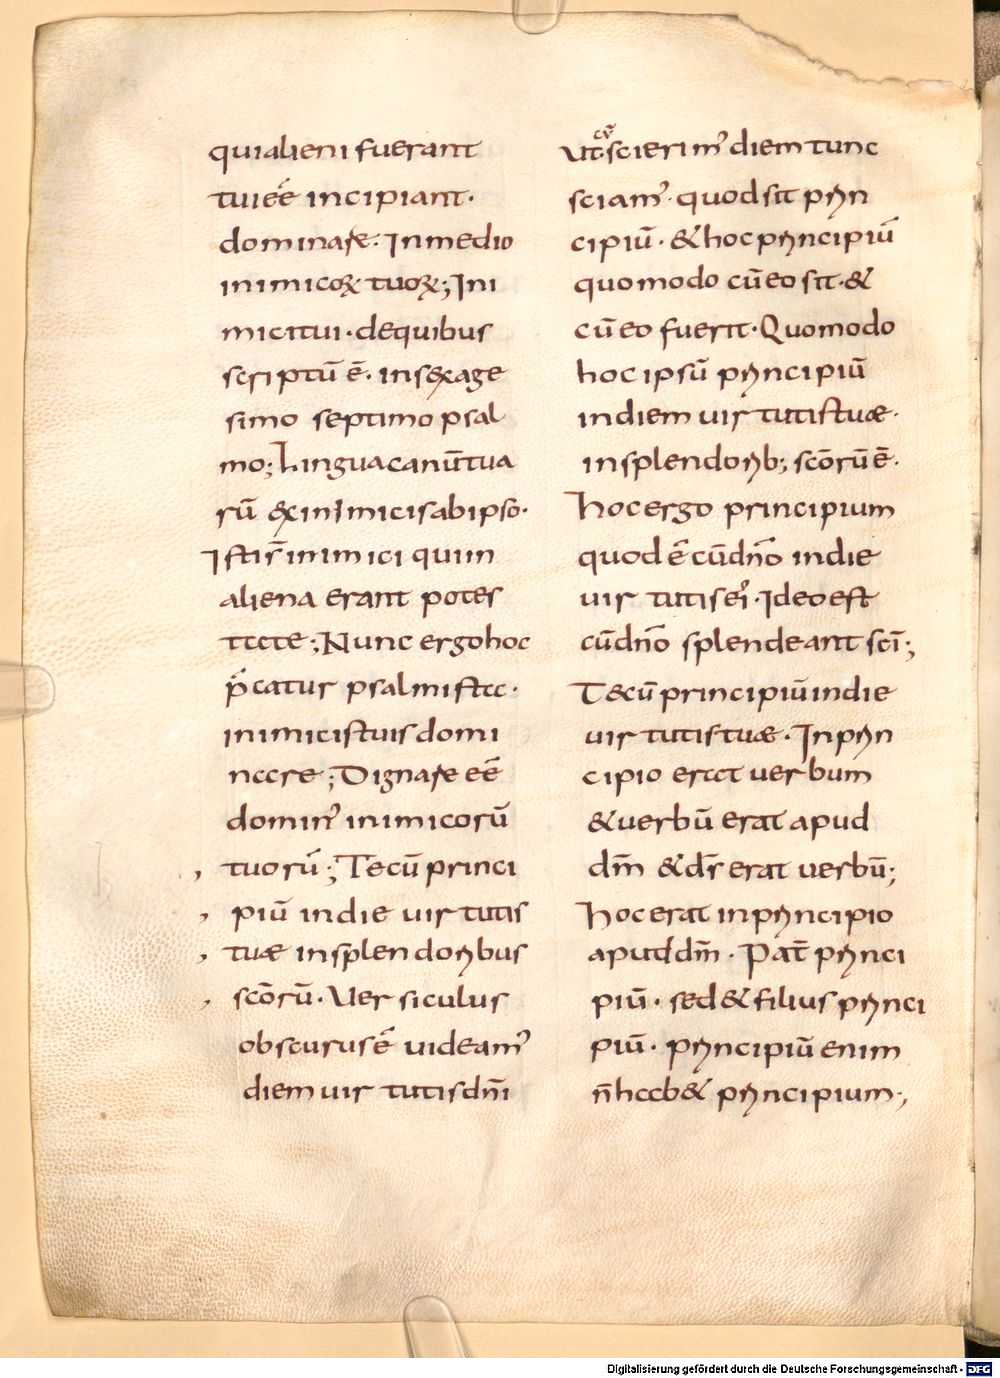 quialieni fuerant
tuieē incipiant.
dominare. Inmedio
inimicoꝝ tuoꝝ; Ini
micitui. dequibus
scriptū ē. insexage
simo septimo psal
mo; Linguacanūtua
rū &cinimicisabipso.
Istis inimici quiin
aliena erant potes
tate; Nunc ergohoc
p̄catur psalmista.
inimicistuisdomi
nare; Dignare eē
domin' inimicorū
tuorū; Tecū princi
piū indie uirtutis
tuæ insplendoribus
scōrū. Ver siculus
obscurusē uideam'
diem uirtutisdn̄i
Ut cū scierim' diem tunc
sciam' quodsit prin
cipiū. &hocprincipiū
quomodo cūeosit. &
cūeo fuerit. Quomodo
hoc ipsū principiū
indiem uirtutistuæ.
insplendorib; scōrūē.
Hocergo principium
quod ē cūdn̄o indie
uirtutisei'. Ideoest
cūdn̄o splendeant scī;
T&cū principiūindie
uirtutistuæ. Inprin
cipio erat uerbum
&uerbū erat apud
dm̄ &ds̄ erat uerbū;
Hocerat inprincipio
apuddm̄. Pat̄ princi
piū. sed&filius princi
piū. principiū enim
n̄hab& principium;
Digitalisierung gefördert durch die Deutsche Forschungsgemeinschaft - DFG